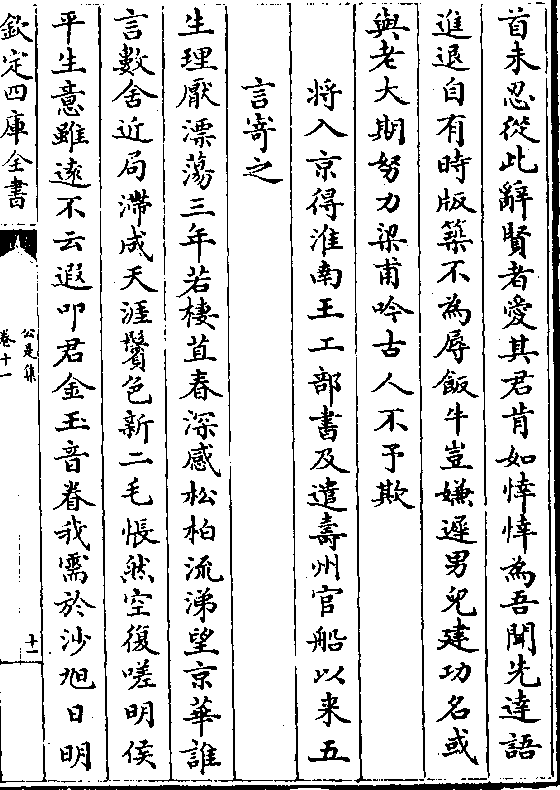 首未忍從此辭賢者愛其君肯如悻悻為吾聞先達語
進退自有時版築不為辱飯牛豈嫌遲男兒建功名或
與老大期努力梁甫吟古人不予欺
將入京得淮南王工部書及遣壽州官船以来五
言寄之
生理厭漂蕩三年若棲苴春深感松柏流涕望京華誰
言數舍近局滯成天涯鬢色新二毛悵然空復嗟明侯
平生意雖遠不云遐叩君金玉音眷我需於沙旭日明
欽定四庫全書
公是集
卷十一
十一